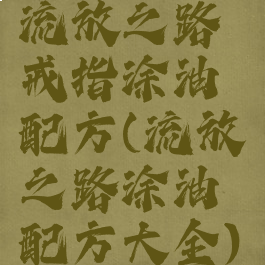 流放之路
戒指涂油
配方(流放
之路涂油
配方大全)